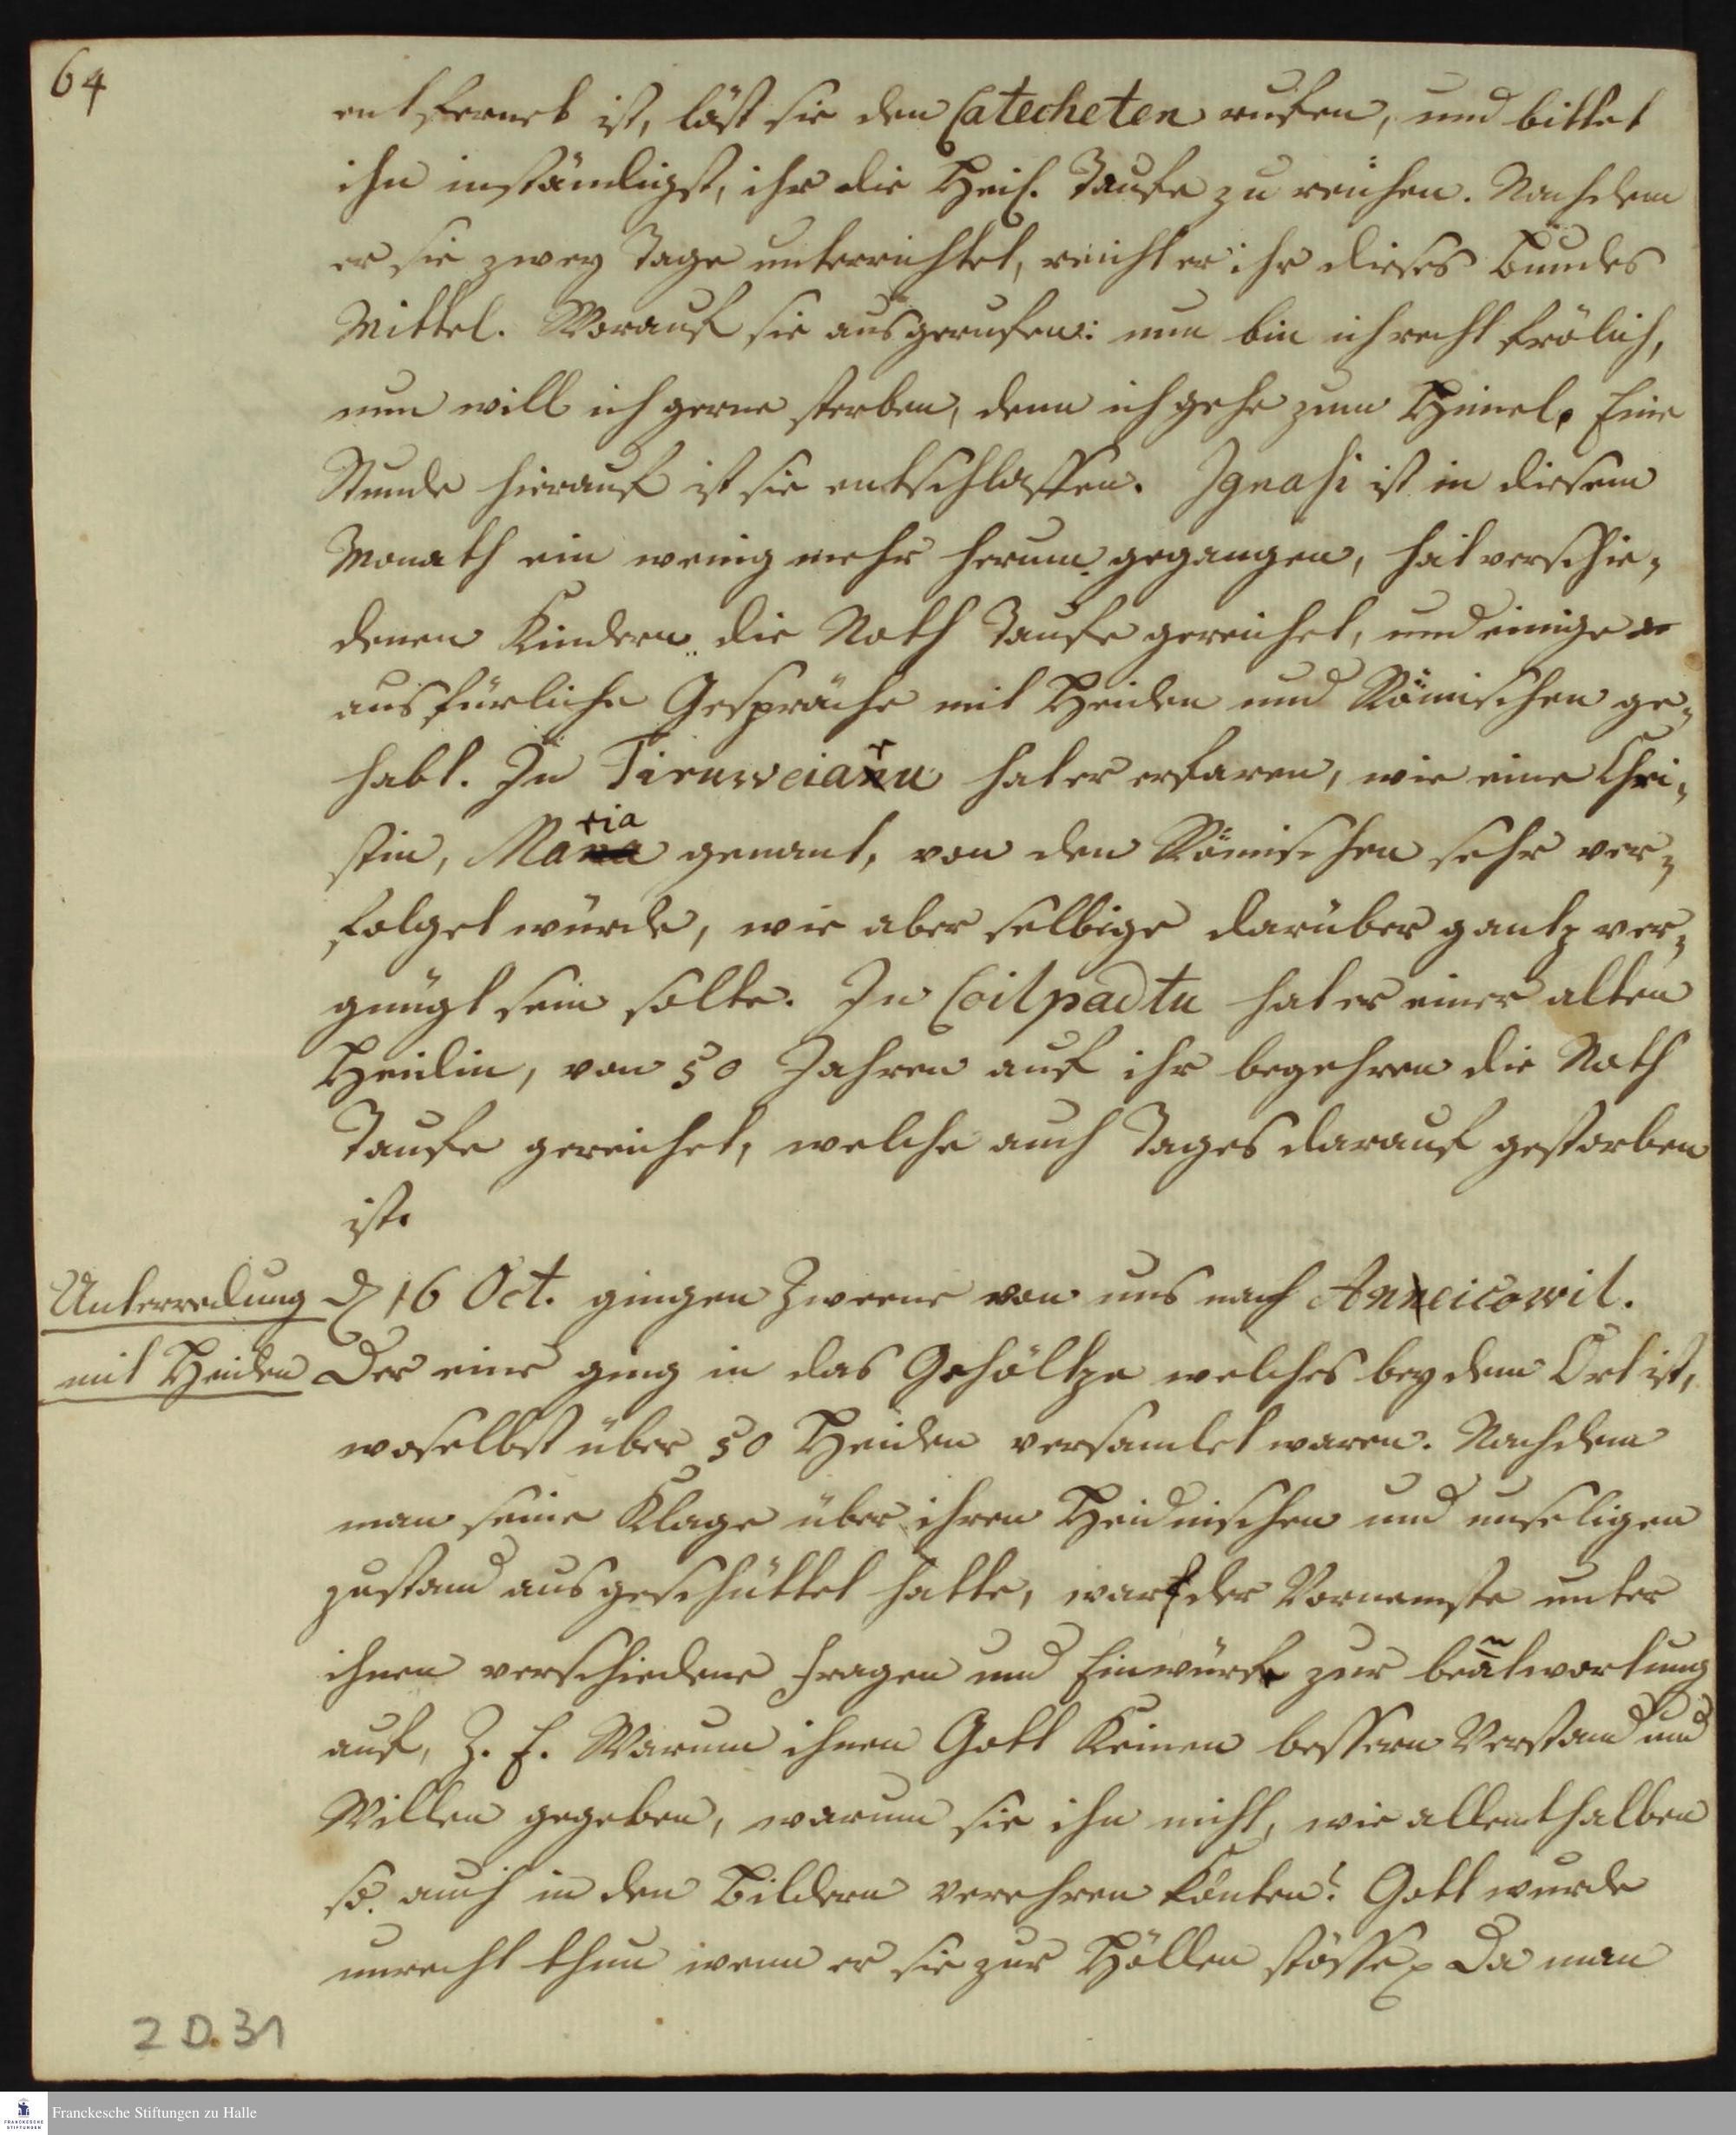 64
entfernet ist, läst sie den Catecheten rufen, und bittet
ihn inständigst, ihr die Heil. Taufe zu reichen. Nachdem
er sie zwey Tage unterrichtet, reicht er ihr dieses Bundes
Mittel. Worauf sie ausgerufen: nun bin ich recht frölich,
nun will ich gerne sterben, denn ich gehe zum Himel. Eine
Stunde hierauf ist sie entschlaffen. Ignasi ist in diesem
Monath ein wenig mehr herum gegangen, hat verschie-
denen Kindern die Noth Taufe gereichet, und einige
ausfürliche Gespräche mit Heiden und Römischen ge-
habt. In Tiruweiaru hat er erfaren, wie eine Chri-
stin, Maria genant, von den Römischen sehr ver-
folget würde, wie aber selbige darüber gantz ver-
gnügt sein solte. In Coilpadtu hat er einer alten
Heidin, von 50 Jahren auf ihr begehren die Noth
Taufe gereichet, welche auch Tages darauf gestorben
ist.
Unterredung
mit Heiden
D. 16 Oct. gingen Zweene von uns nach Aneicowil.
Der eine ging in das Gehöltze welches bey dem Ort ist,
woselbst über 50 Heiden versamlet waren. Nachdem
man seine Klage über ihren Heidnischen und unseligen
zustand ausgeschüttet hatte, warf der Vornemste unter
ihnen verschiedene Fragen und Einwürfe zur beãtwortung
auf, Z. E. Warum ihnen Gott keinen bessern Verstand und
Willen gegeben, warum sie ihn nicht, wie allenthalben
so auch in den Bildern verehren könten? Gott wurde
unrecht thun wenn er sie zur Höllen stösse. Da man
2 D. 31
Franckesche Stiftungen zu Halle